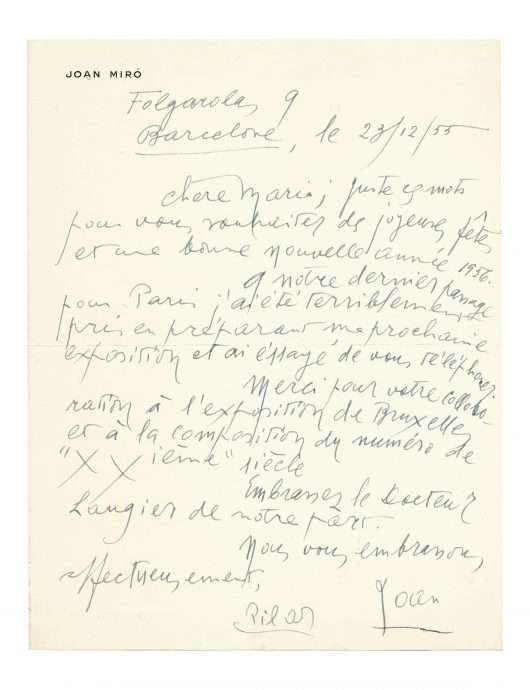 JOAN MIRÓ
Folgarolas 9
Barcelone, le 23/12/55
chere Maria; juste ces mots
pour vous souhaiter de joyeuses fêtes
et une bonne nouvelle année 1956.
A notre dernier passage
pour Paris j'ai été terriblement
pris en préparant ma prochaine
exposition et ai éssayé de vous téléphoner
Merci pour votre collabo-
ration à l'exposition de Bruxelles
et à la composition du numéro de
"XXième" siècle
Embrassez le Docteur
Laugier de notre part.
Nous vous embrassons,
affectueusement,
Pilar Joan